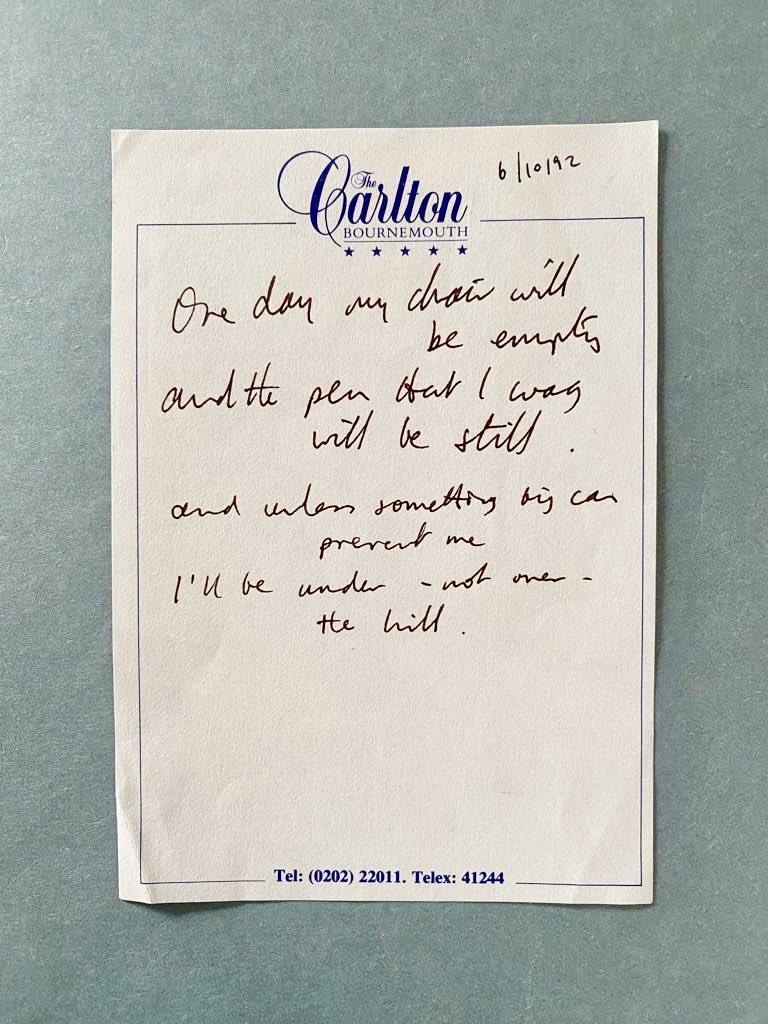 6/10/92
The
Carlton
BOURNEMOUTH
One day my chair will
be empty
and the pen that I wag
will be still.
and unless something big can
prevent me
I'll be under - not over -
the hill.
Tel: (0202) 22011. Telex: 41244